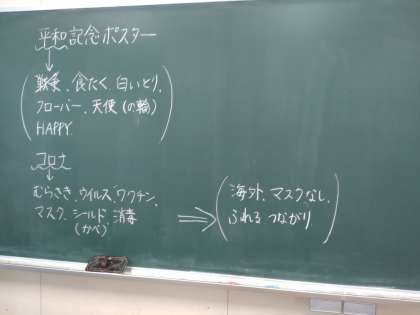 平和記念ポスター
(戦争、食たく、白いとり、
クローバー、天使(の輪)
HAPPY)
コロナ
むらさき、ウイルス、ワクチン、
マスク、シールド、消毒
(かべ)
⇒(海外、マスクなし、
ふれる つながり)